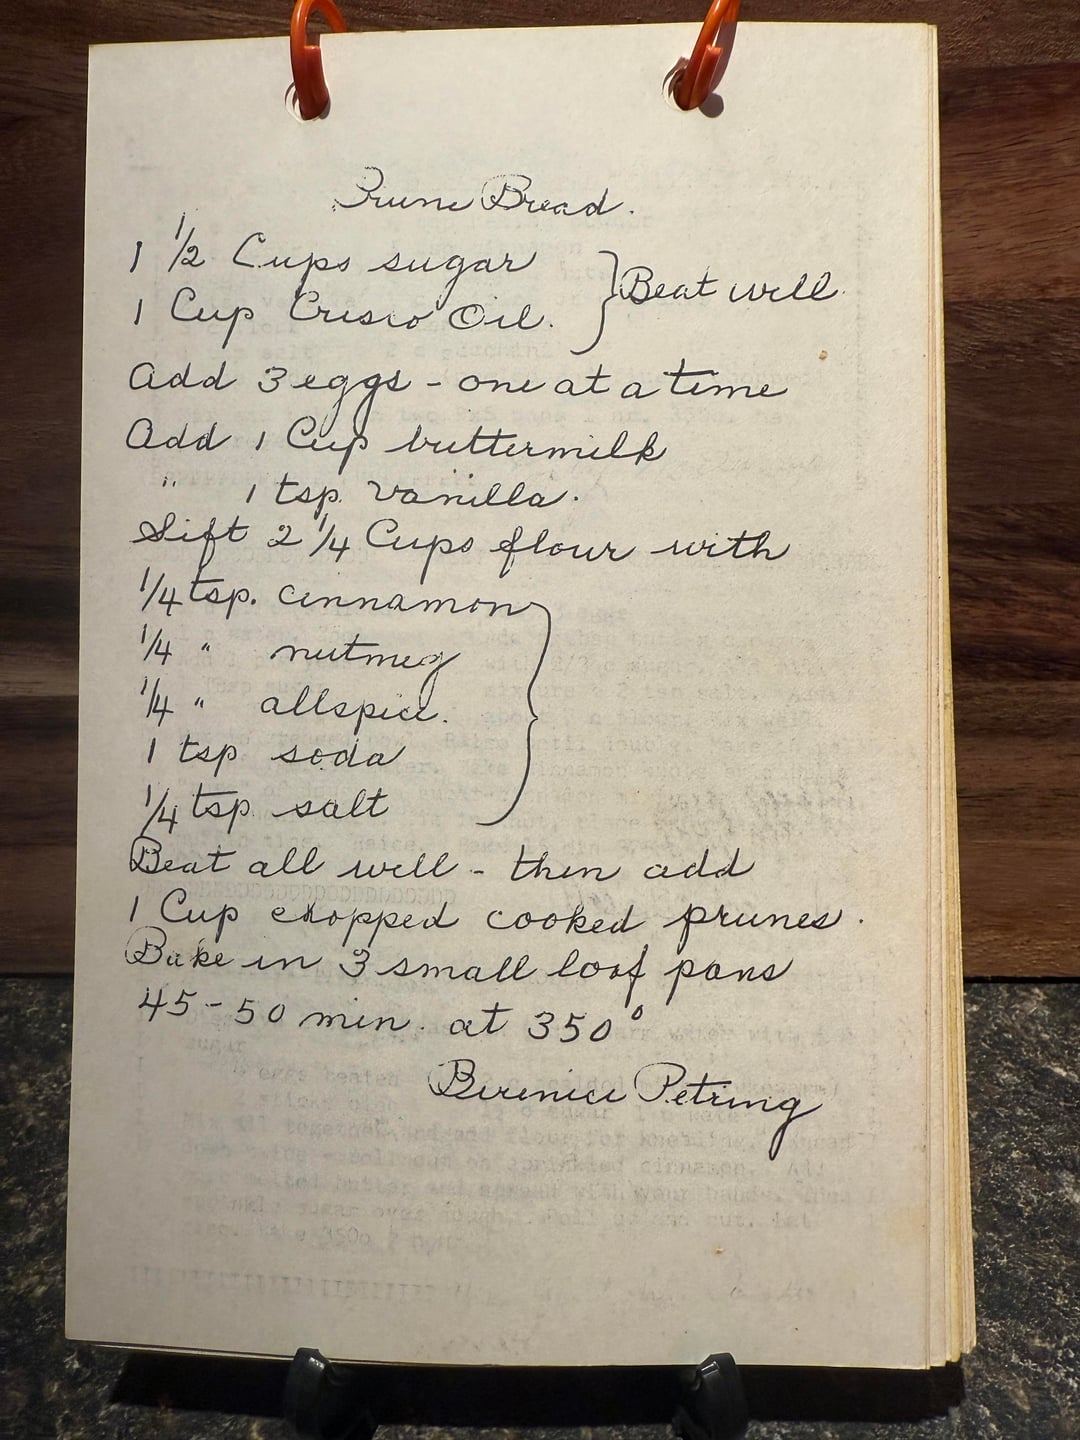 Prune Bread.
1 1/2 Cups sugar
1 Cup Crisco Oil. } Beat well.
Add 3 eggs - one at a time
Add 1 Cup buttermilk
" 1 tsp. vanilla.
Sift 2 1/4 Cups flour with
1/4 tsp. cinnamon
1/4 " nutmeg
1/4 " allspice.
1 tsp soda
1/4 tsp. salt
Beat all well - then add
1 Cup chopped cooked prunes.
Bake in 3 small loaf pans
45-50 min. at 350°
Berenice Petring